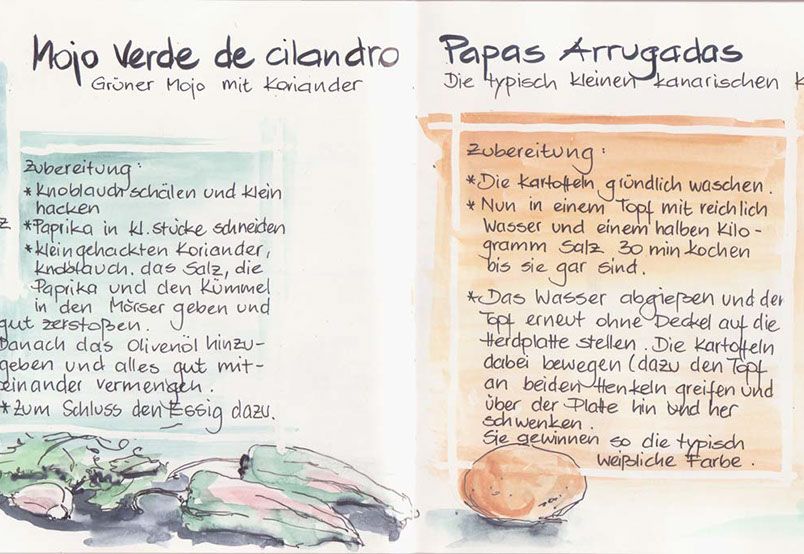 Mojo Verde de cilantro
Grüner Mojo mit Koriander
Zubereitung:
* Knoblauch schälen und klein
hacken
z
* Paprika in kl. stücke schneiden
* kleingehackten Koriander,
Knoblauch. das Salz, die
Paprika und den Kümmel
in den Mörser geben und
gut zerstoßen.
Danach das Olivenöl hinzu-
geben und alles gut mit-
einander vermengen.
* Zum Schluss den Essig dazu.
Papas Arrugadas
Die typisch kleinen kanarischen K
Zubereitung:
* Die Kartoffeln gründlich waschen.
* Nun in einem Topf mit reichlich
Wasser und einem halben Kilo-
gramm Salz 30 min kochen
bis sie gar sind.
* Das Wasser abgießen und den
Topf erneut ohne Deckel auf die
Herdplatte stellen. Die Kartoffeln
dabei bewegen (dazu den Topf
an beiden Henkeln greifen und
über der Platte hin und her
schwenken.
Sie gewinnen so die typisch
weißliche Farbe.